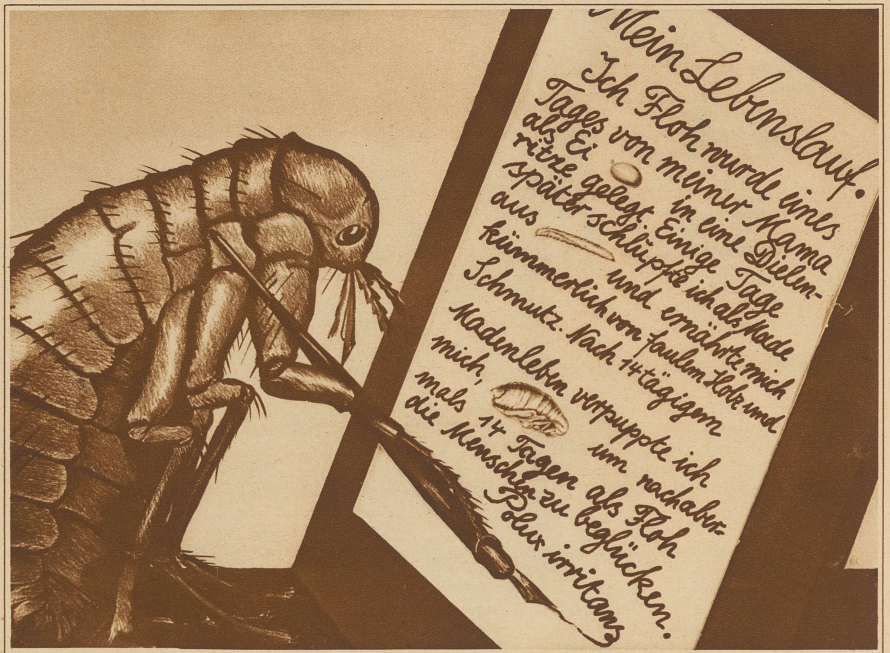 Mein Lebenslauf.
Ich Floh wurde eines
Tages von meiner Mama
als Ei in eine Dielen-
ritze gelegt. Einige Tage
später schlüpfte ich als Made
aus und ernährte mich
kümmerlich von faulem Holz und
Schmutz. Nach 14tägigem
Madenleben verpuppte ich
mich, um nach aber-
mals 14 Tagen als Floh
die Menschen zu beglücken.
Pulex irritans